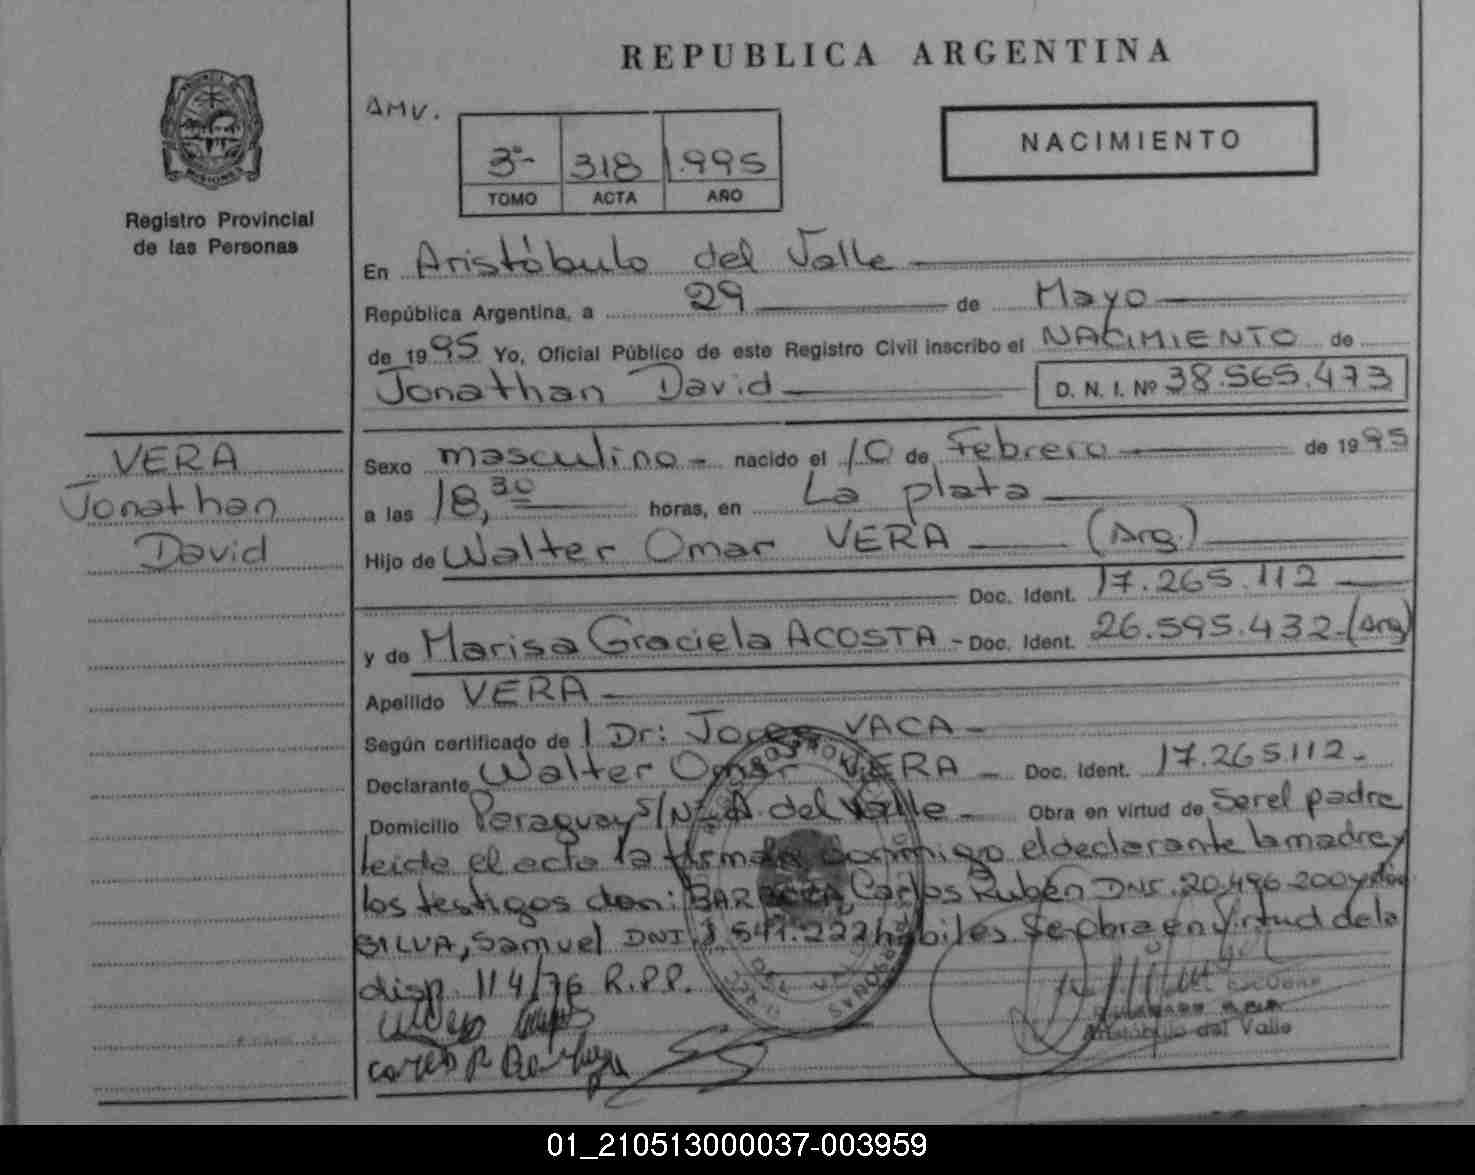 REPUBLICA ARGENTINA
AMV.
NACIMIENTO
3º- 318 1.995
TOMO ACTA AÑO
MISIONES
Registro Provincial
de las Personas
En Aristóbulo del Valle
República Argentina, a 29 de Mayo
de 1995 Yo, Oficial Público de este Registro Civil inscribo el NACIMIENTO de
Jonathan David D. N. I. Nº 38.565.473
VERA
Jonathan
David
Sexo masculino - nacido el 10 de Febrero de 1995
a las 18,30 horas, en La plata
Hijo de Walter Omar VERA (Arg.)
Doc. Ident. 17.265.112
y de Marisa Graciela ACOSTA - Doc. Ident. 26.595.432-(Arg)
Apellido VERA
Según certificado de l Dr: VACA -
Declarante Walter Omar VERA - Doc. Ident. 17.265.112-
Domicilio Paraguay S/Nº A. del Valle - Obra en virtud de Ser el padre
leida el acta la firman conmigo el declarante la madre y
los testigos don: Carlos Rubén DNI. 20.496.200 y don
SILVA, Samuel DNI 541.222 hábiles Se obra en virtud de la
disp. 114/76 R.P.P.
Carlos R
Aristóbulo del Valle
01_210513000037-003959